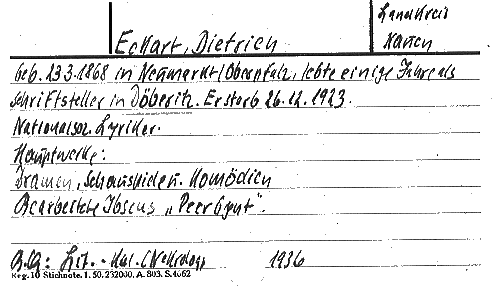 Landkreis
Eckart, Dietrich
Nauen
geb. 23.3.1868 in Neumarkt/Oberpfalz, lebte einige Jahre als
Schriftsteller in Döberitz. Er starb 26.12.1923.
Nationalsoz. Lyriker.
Hauptwerke:
Dramen, Schauspielen. Komödien
Bearbeitete Ibsens „Peer Gynt“.
Lit. 1936
Reg. 10 Stichnote. 1. 50. 232000. A. 803. S. 4062